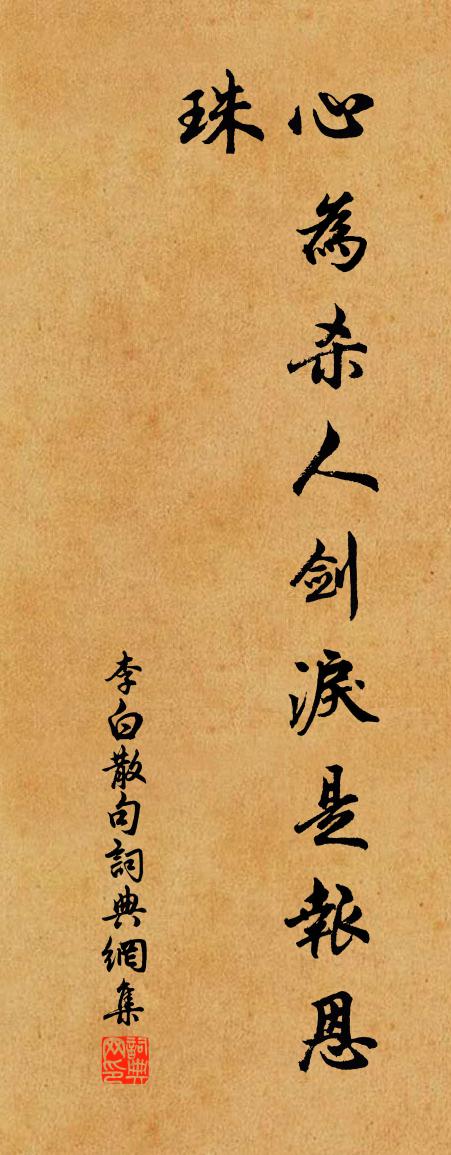 心為杀人剑淚是報恩
珠
李白散句詞典網集
詞典网印